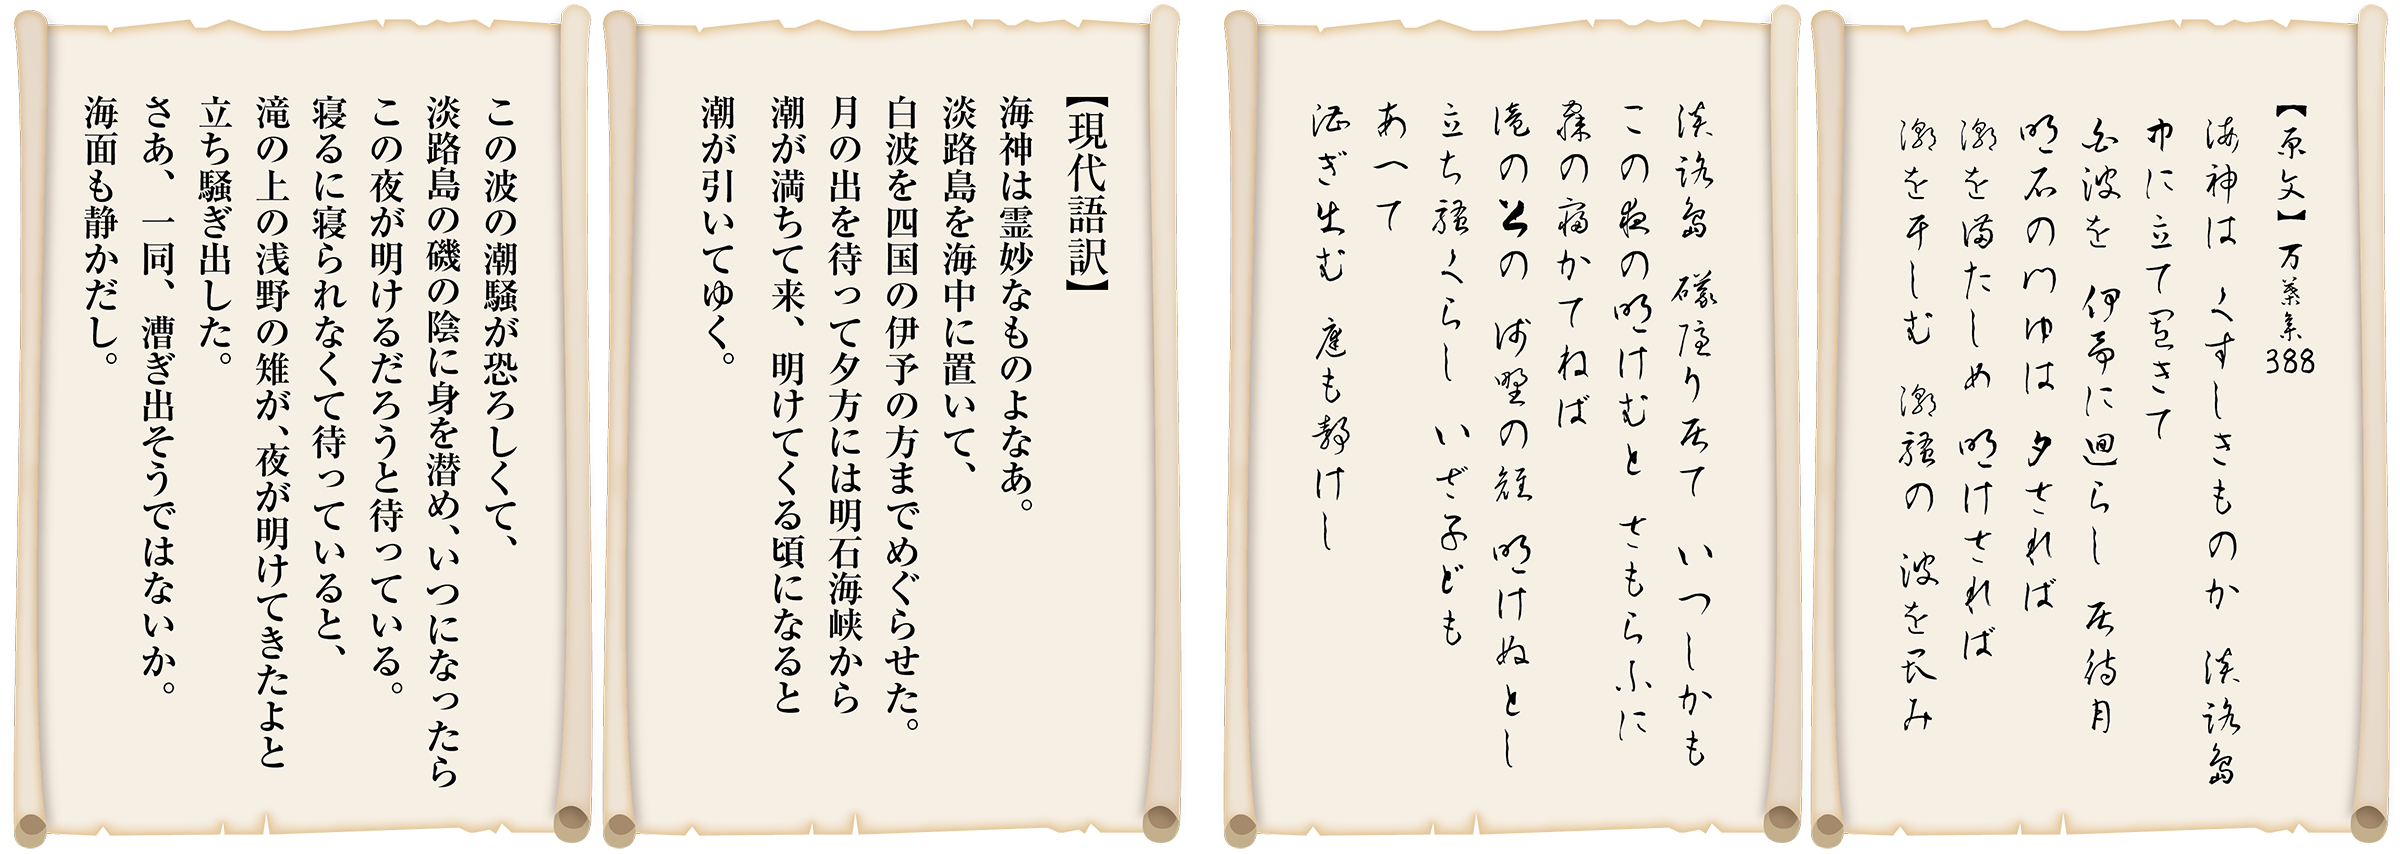 【原文】万葉集388
海神は くすしきものか 淡路島
中に立て置きて
白波を 伊予に廻らし 居待月
明石の門ゆは 夕されば
潮を満たしめ 明けされば
潮を干しむ 潮騒の 波を畏み
淡路島 礒隠り居て いつしかも
この夜の明けむと さもらふに
寐の寝かてねば
滝の上の 浅野の雉 明けぬとし
立ち騒くらし いざ子ども
あへて
漕ぎ出む 庭も静けし
【現代語訳】
海神は霊妙なものよなあ。
淡路島を海中に置いて、
白波を四国の伊予の方までめぐらせた。
月の出を待って夕方には明石海峡から
潮が満ちて来、明けてくる頃になると
潮が引いてゆく。
この波の潮騒が恐ろしくて、
淡路島の磯の陰に身を潜め、いつになったら
この夜が明けるだろうと待っている。
寝るに寝られなくて待っていると、
滝の上の浅野の雉が、夜が明けてきたよと
立ち騒ぎ出した。
さあ、一同、漕ぎ出そうではないか。
海面も静かだし。